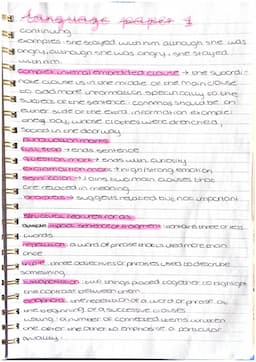 Language paper 1
continuing
examples: she stayed with him although she was
angry, although she was angry, she stayed
with him.
complex internal embedded clause → the subordi-
nate clause is in the middle of the main clause
to add more information specifically to the
subject of the sentence. commas should be on
either side of the extra information example:
one boy, whose clothes were drenched,
stood in the doorway
punctuation marks
full stop → ends sentence
question mark → ends with curiosity
exclamation mark → high strong emotion
semi colon → joins two main clauses that
are related in meaning
suggests related but not important
structural features for
sentence or fragment: contains three or less
words
repetition: a word or phrase that is used more than
once
three adjectives or phrases used to describe
something
juxtaposition: two things placed together to highlight
the contrast between them
anaphora: the repetition of a word or phrase at
the beginning of a successive clauses
listing: a number of connected items written
one after the other to emphasise a particular
quality.